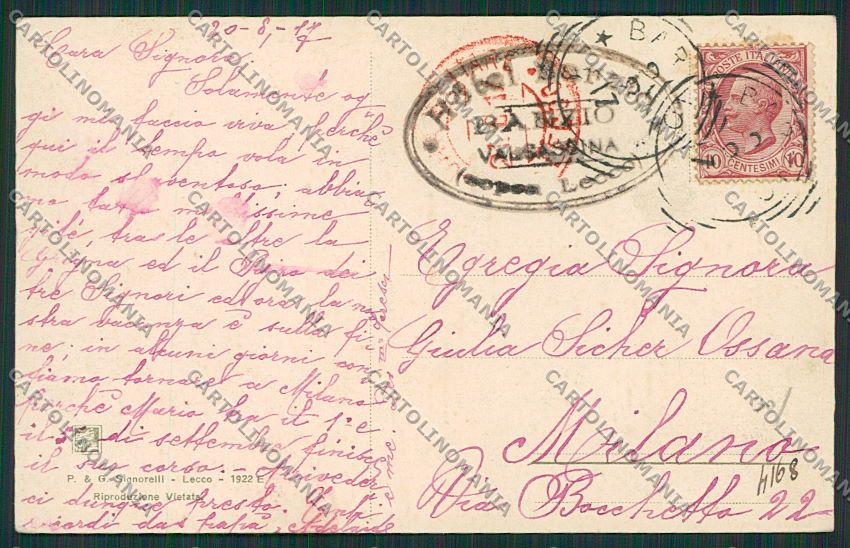 20-8,-17
Cara Signora,
Solamente og
gi mi faccio viva perchè
qui il tempo vola in
modo spaventoso; abbia
mo fatto moltissime
gite, tra le altre la
Grigna ed il Pizzo dei
tre Signori ed ora la no
stra vacanza è sulla fi
ne; in alcuni giorni con
diamo tornare a Milano
perchè Mario fra il 1º e
il 5 di settembre finisce
il suo corso. - Arriveder
ci dunque presto. Tanti
ricordi da papà, Adelaide
e me.
P. & G. Signorelli - Lecco - 1922 E
Riproduzione Vietata
Hotel
BARZIO
VALSASSINA
(sopra Lecco)
BAR
POSTE ITALIANE
10 CENTESIMI 10
Egregia Signora
Giulia Sicher Ossana
Milano
Via Bocchetto 22-
4168
CARTOLINOMANIA